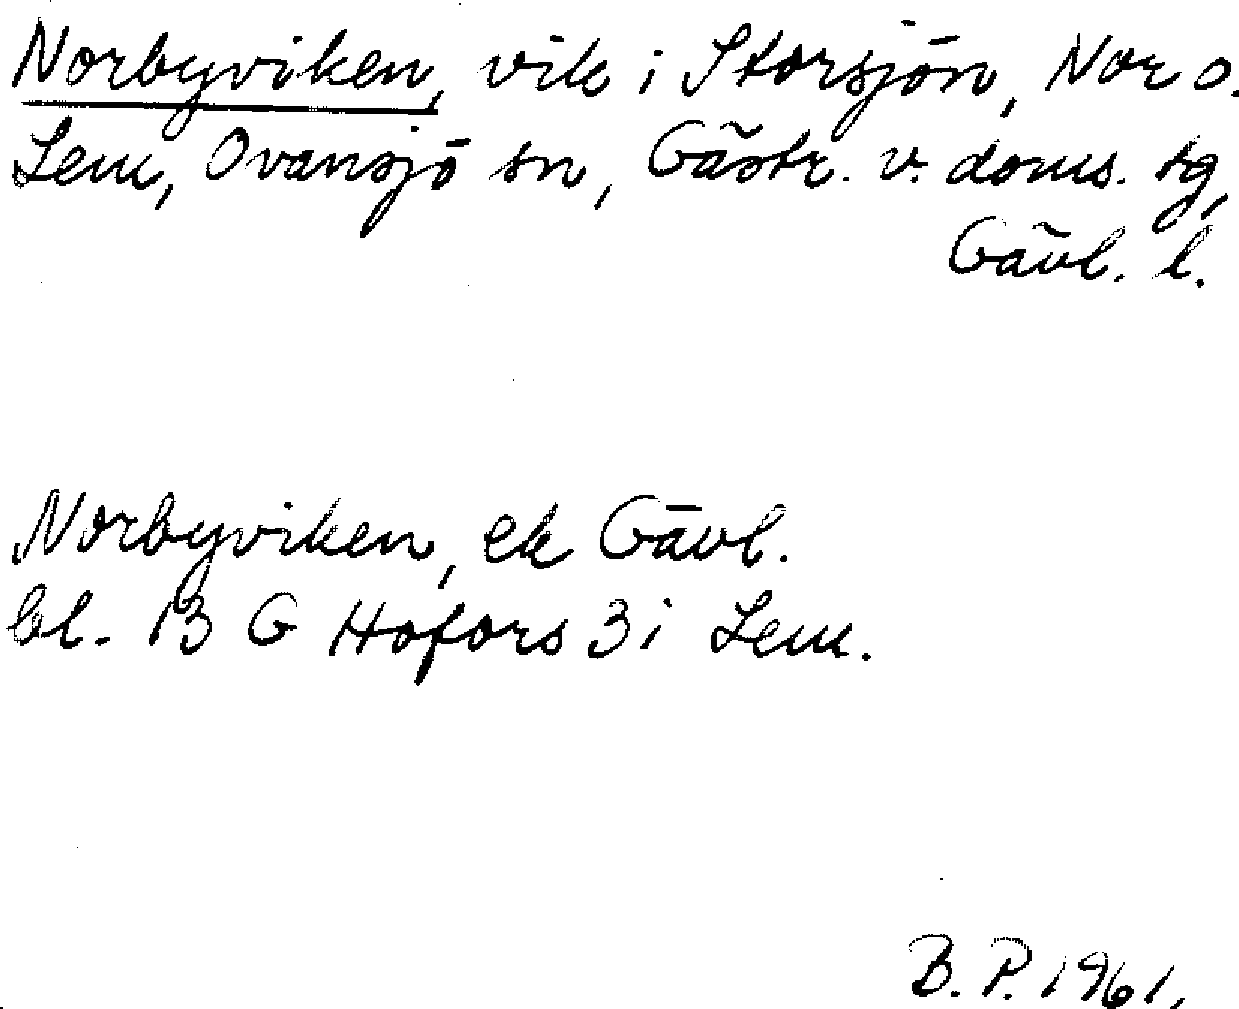 Norbyviken, vik i Storsjön, Nor o.
Lem, Ovansjö sn, Gästr. v. doms. tg,
Gävl. l.
Norbyviken, ek Gävl.
bl. 13 G Hofors 3i Lem.
B. P. 1961.